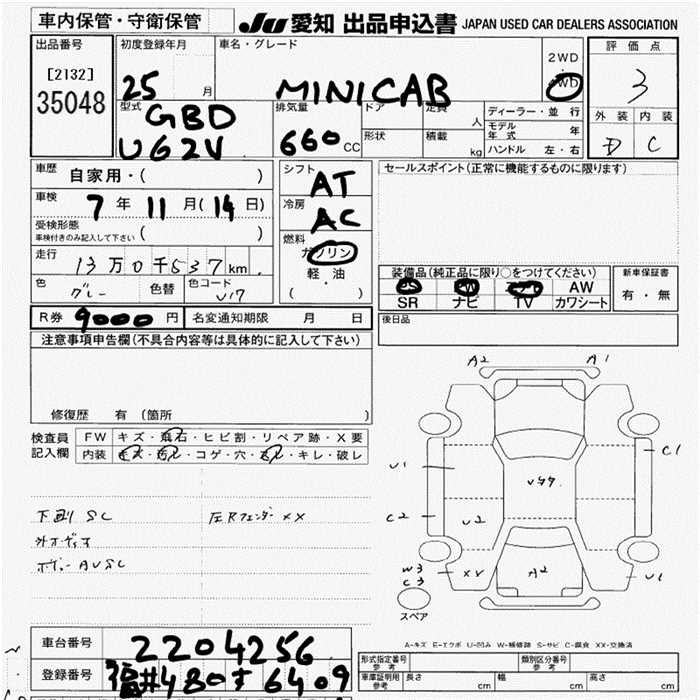 車内保管・守衛保管
JU 愛知 出品申込書 JAPAN USED CAR DEALERS ASSOCIATION
出品番号
[2132]
35048
初度登録年月
25 月
車名・グレード
MINICAB
2WD
4WD
評価点
3
外装 内装
D C
型式
GBD
U62V
排気量
660 CC
ドア
定員 人
形状
積載 kg
ディーラー・並行
モデル年式 年
ハンドル 左・右
車歴 自家用・( )
車検 7年11月(14日)
受検形態
車検付きのみ記入して下さい ( )
走行
13万0千537km
色 グレー
色替
色コード U17
シフト
AT
冷房
AC
燃料
ガソリン
軽・油
( )
セールスポイント(正常に機能するものに限ります)
装備品(純正品に限り○をつけてください)
PS PW エアB AW
SR ナビ TV カワシート
新車保証書
有・無
R券 9000円
名変通知期限 月 日
後日品
注意事項申告欄(不具合内容等は具体的に記入して下さい)
修復歴 有 (箇所 )
検査員
記入欄
FW キズ・飛石・ヒビ割・リペア跡・X要
内装 キズ・汚レ・コゲ・穴・スレ・キレ・破レ
下廻り SC
左Rフェンダー XX
外オーディオ
ボデー AUSC
A2 A1
U1
C1
C2
U2
W3
C3
XX
A2
U1
スペア
A-キズ E-エクボ U-凹み W-補修跡 S-サビ C-腐食 XX-交換済
車台番号 2204256
登録番号 福井480す6409
形式指定番号
参考
類別区分番号
参考
車庫証明用
参考
長さ cm
幅 cm
高さ cm